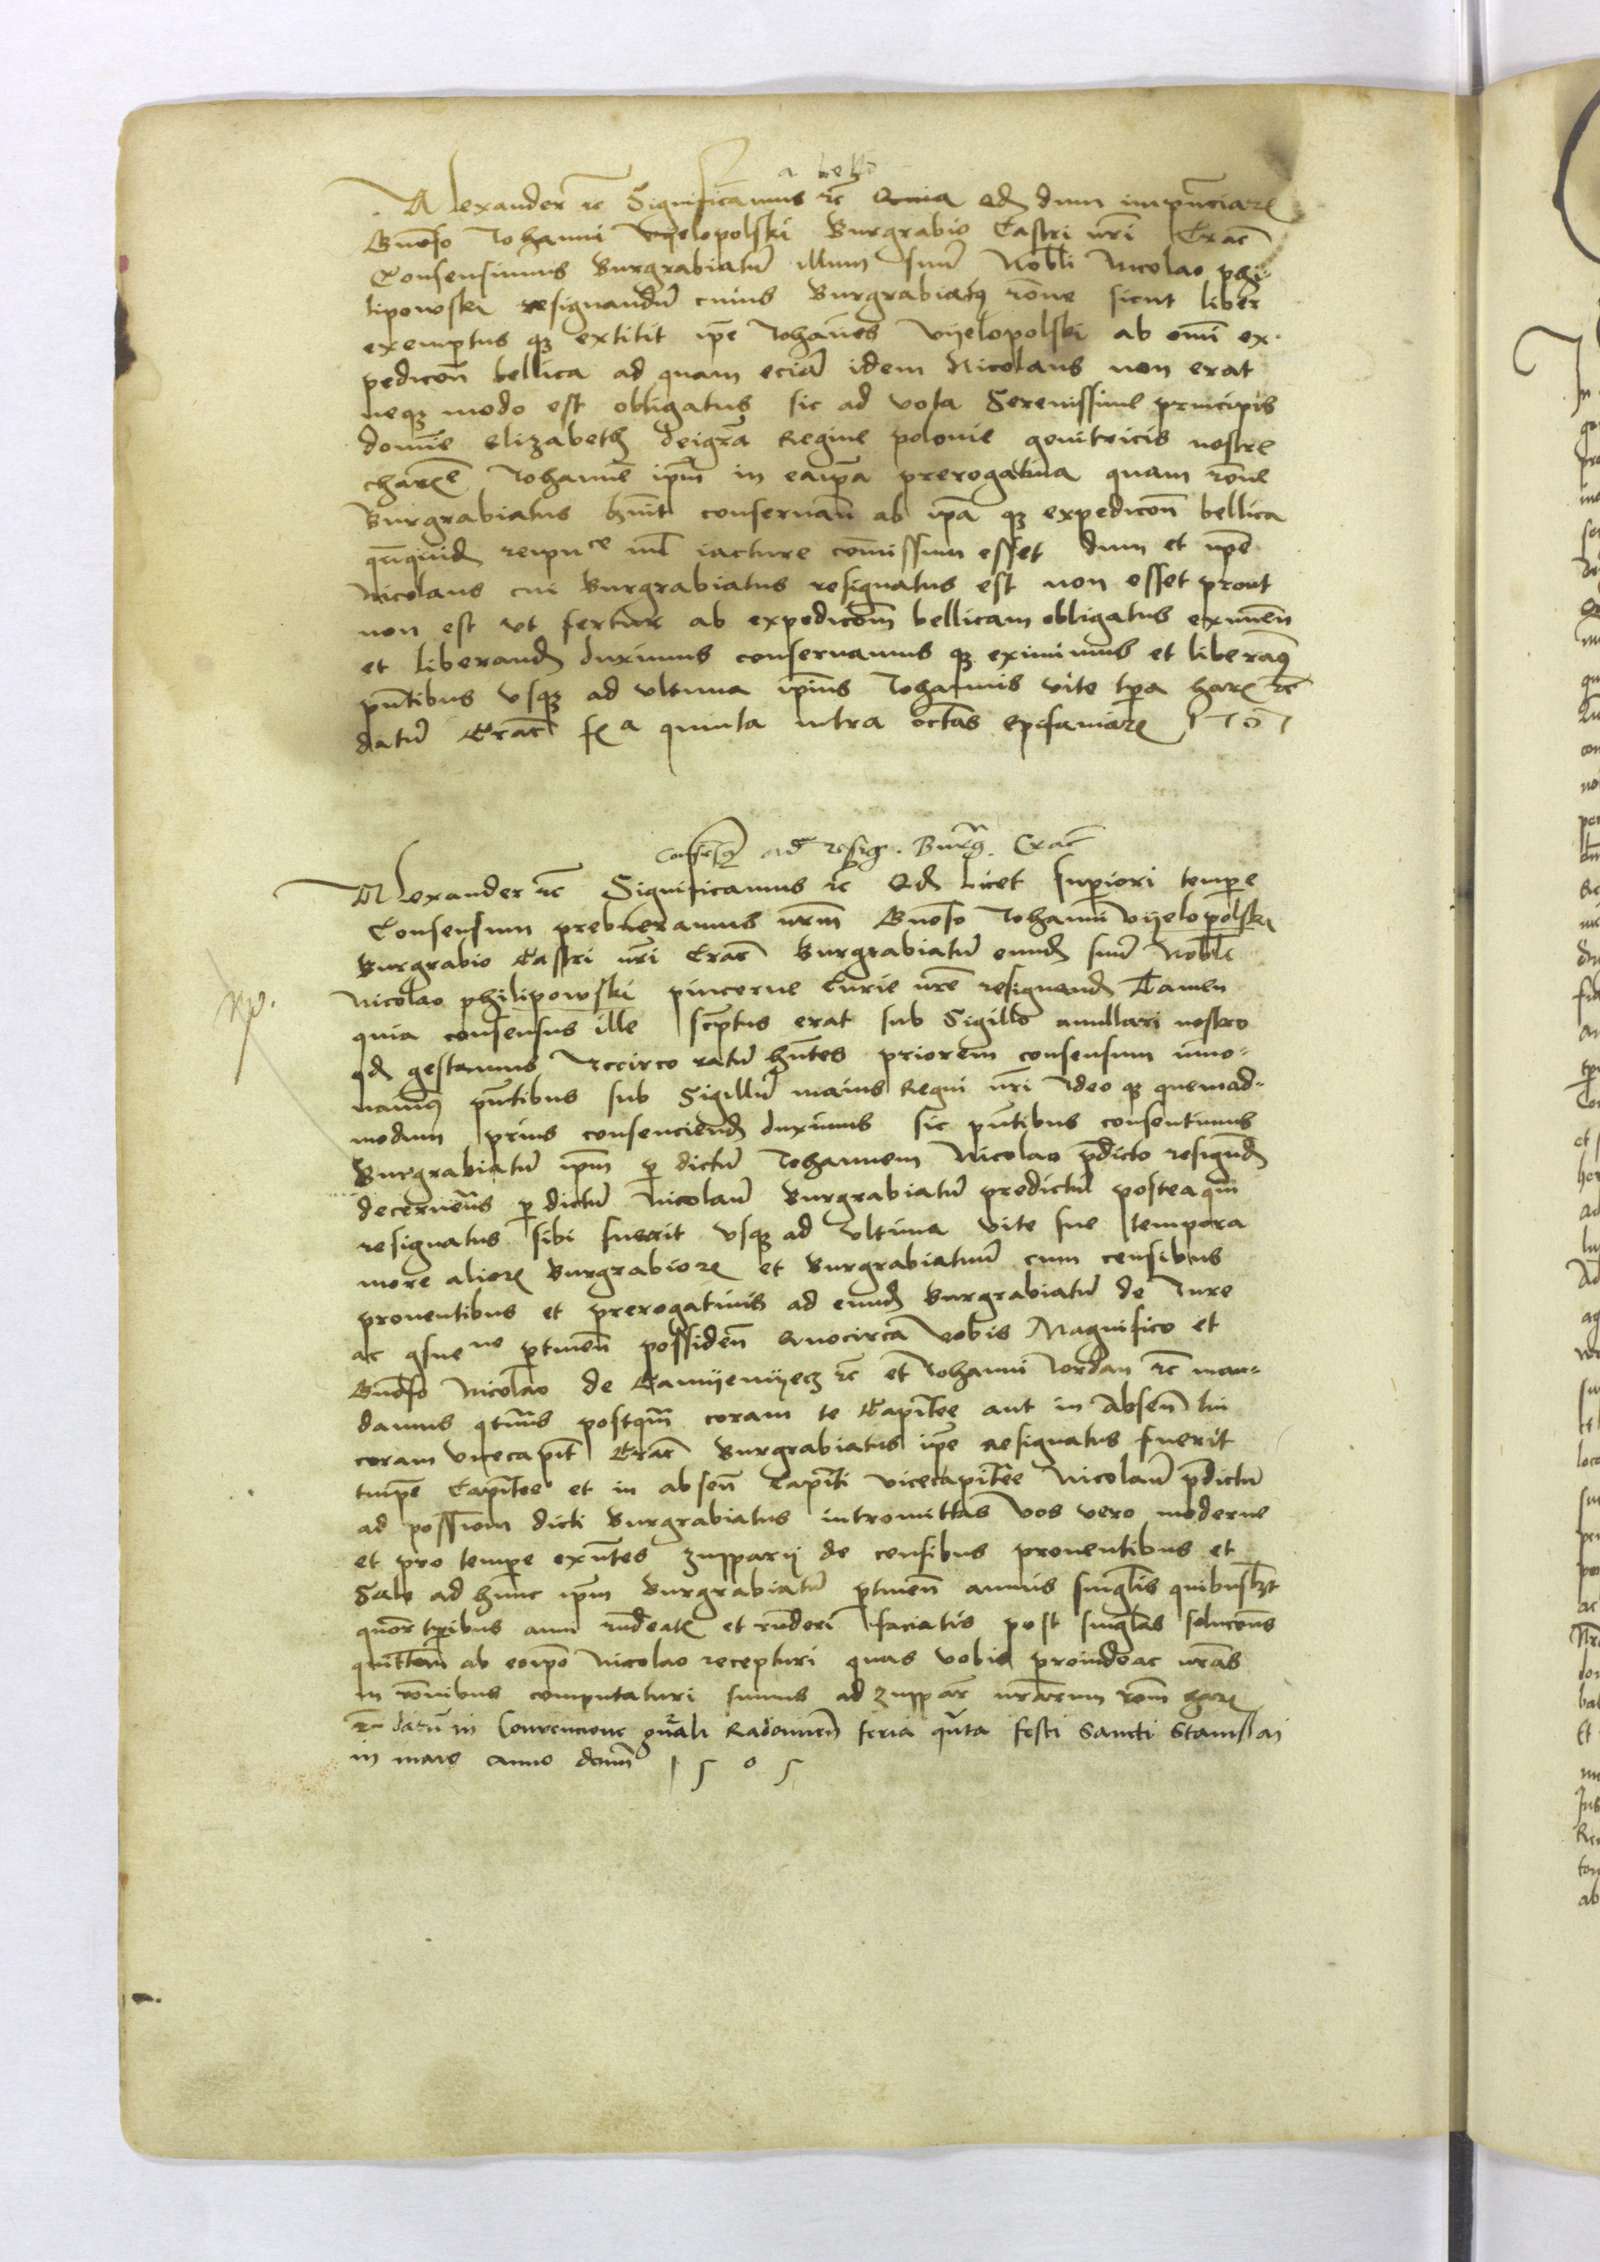 a bello
Alexander etc Significamus etc Quia Qd dum impnciarz
Gnoso Johanni Vyelopolski Burgrabio Castri nri Crac
Consensimus Burgrabiatu illum suu Nobli Nicolao phi-
lipowski resignandu cuius Burgrabiatq rone sicut liber
exemptus qz extitit ipe Johanes Vyelopolski ab omi ex-
pedicon bellica ad quam eciam idem Nicolaus non erat
neqz modo est obligatus sic ad vota Serenissime principis
domne Elizabeth deigra Regine polonie genitricis nostre
charme Johanne ipm in eaipa prerogativa quam rone
Burgrabiatus huit conseruan ab ipa qz expedicon bellica
qnquid reipuce nil iacture comissum esset dum et ipe
Nicolaus cui Burgrabiatus resignatus est non esset prout
non est vt fertur ab expedicom bellicam obligatus eximen
et liberand duximus conseruamus qz eximimus et liberamq
pntibus vsqz ad vltima ipius Johannis vite tpa harz etc
datu Crac fr a quinta intra octas Epifaniarz 1505
Consensq ad resig. Burg. Crac
Alexander etc Significamus etc Qd licet superiori tempe
Consensum prebueramus nrm Gnoso Johanni Vyelopolski
Burgrabio Castri nri Crac Burgrabiatu eund suu Nobli
Nicolao philipowski pincerne Curie nre resignand Tamen
quia consensus ille scptus erat sub Sigillo anullari nostro
qd gestamus Iccirco ratu hntes priorem consensum inno-
uamq pntibus sub Sigillu maius Regni nri Ideo qz quemad-
modum prius consenciend duximus sic pntibus consentimus
Burgrabiatu ipm p dictu Johannem Nicolao pdicto resignd
decernens p dictu Nicolau Burgrabiatu predictu posteaqm
resignatus sibi fuerit vsqz ad vltima vite sue tempora
more aliorz Burgrabiorz et Burgrabiatuum cum censibus
prouentibus et prerogatiuis ad eund Burgrabiatu de Iure
ac qsue ne ptinen possiden Quocirca vobis Magnifico et
Gnoso Nicolao de Camyenyecz etc et Johanni Jordan etc man-
damus qtnus postqm coram te Capitee aut in Absen tui
coram vicecapit Crac Burgrabiatus ipe resignatus fuerit
tuipe Capitee et in absen Capiti vicecapitee Nicolau pdictu
ad possiom dicti Burgrabiatus intromittas vos vero moderne
et pro tempe exntes zupparij de censibus prouentibus et
Sale ad hunc ipm Burgrabiatu ptinen annis singlis quibuslzt
quor tpibus anni rndeatz et rnderi faciatis post singlas solucons
quittem ab eoipo Nicolao recepturi quas vobis proindeac nras
in ronibus computaturi sumus ad zuppar nrarum rom harz
etc datu in Conuencione gnali Radomien feria qnta festi Sancti Stanislai
in maio anno domi 1505